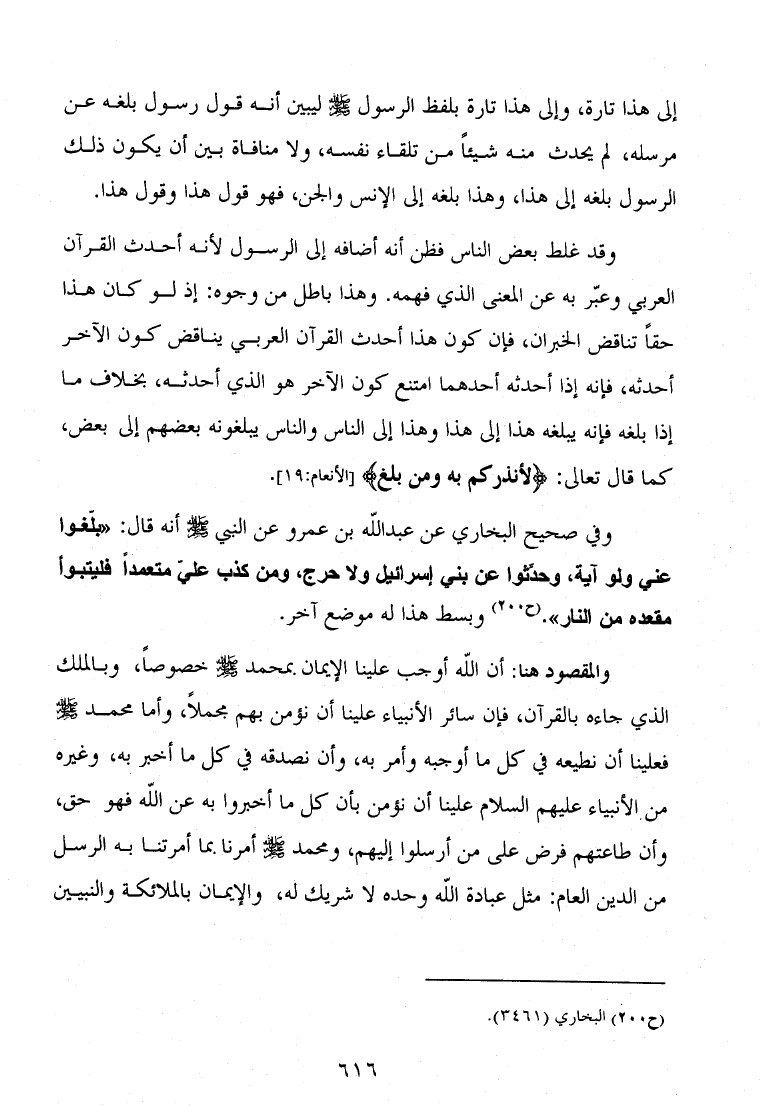 إلى هذا تارة، وإلى هذا تارة بلفظ الرسول ﷺ ليبين أنه قول رسول بلغه عن
مرسله، لم يحدث منه شيئاً من تلقاء نفسه، ولا منافاة بين أن يكون ذلك
الرسول بلغه إلى هذا، وهذا بلغه إلى الإنس والجن، فهو قول هذا وقول هذا.
وقد غلط بعض الناس فظن أنه أضافه إلى الرسول لأنه أحدث القرآن
العربي وعبّر به عن المعنى الذي فهمه. وهذا باطل من وجوه: إذ لو كان هذا
حقاً تناقض الخبران، فإن كون هذا أحدث القرآن العربي يناقض كون الآخر
أحدثه، فإنه إذا أحدثه أحدهما امتنع كون الآخر هو الذي أحدثه، بخلاف ما
إذا بلغه فإنه يبلغه هذا إلى هذا وهذا إلى الناس والناس يبلغونه بعضهم إلى بعض،
كما قال تعالى: ﴿لأنذركم به ومن بلغ﴾ [الأنعام:١٩].
وفي صحيح البخاري عن عبدالله بن عمرو عن النبي ﷺ أنه قال: «بلّغوا
عني ولو آية، وحدّثوا عن بني إسرائيل ولا حرج، ومن كذب عليّ متعمداً فليتبوأ
مقعده من النار».(ح٢٠٠) وبسط هذا له موضع آخر.
والمقصود هنا: أن الله أوجب علينا الإيمان بمحمد ﷺ خصوصاً، وبالملك
الذي جاءه بالقرآن، فإن سائر الأنبياء علينا أن نؤمن بهم مجملاً، وأما محمد ﷺ
فعلينا أن نطيعه في كل ما أوجبه وأمر به، وأن نصدقه في كل ما أخبر به، وغيره
من الأنبياء عليهم السلام علينا أن نؤمن بأن كل ما أخبروا به عن الله فهو حق،
وأن طاعتهم فرض على من أرسلوا إليهم، ومحمد ﷺ أمرنا بما أمرتنا به الرسل
من الدين العام: مثل عبادة الله وحده لا شريك له، والإيمان بالملائكة والنبيين
(ح٢٠٠) البخاري (٣٤٦١).
٦١٦